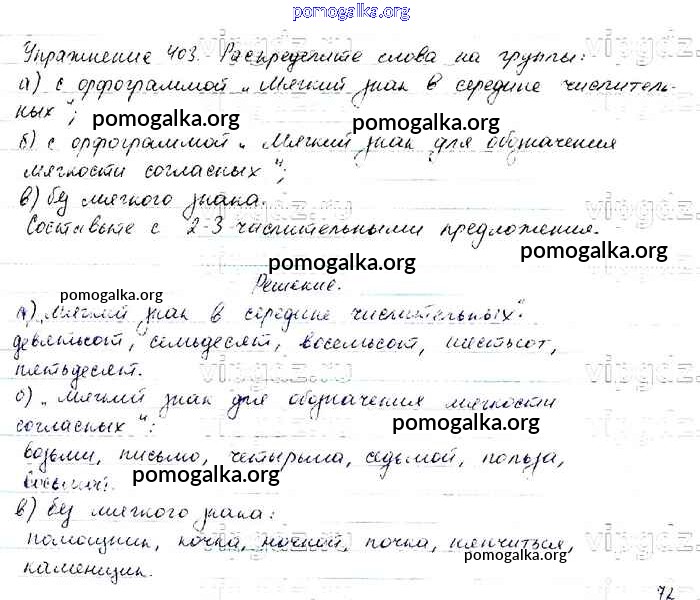 pomogalka.org
Упражнение 403. Распределите слова на группы:
а) с орфограммой „Мягкий знак в середине числитель-
ных";
pomogalka.org
pomogalka.org
б) с орфограммой „Мягкий знак для обозначения
мягкости согласных";
в) без мягкого знака.
Составьте с 2-3 числительными предложения.
pomogalka.org
pomogalka.org
Решение.
pomogalka.org
а) „Мягкий знак в середине числительных":
девятьсот, семьдесят, восемьсот, шестьсот,
пятьдесят.
б) „Мягкий знак для обозначения мягкости
согласных":
pomogalka.org
возьми, письмо, четырьмя, седьмой, польза,
восьмой.
pomogalka.org
в) без мягкого знака:
помощник, кочка, ночной, почка, нянчиться,
pomogalka.org
каменщик.
72